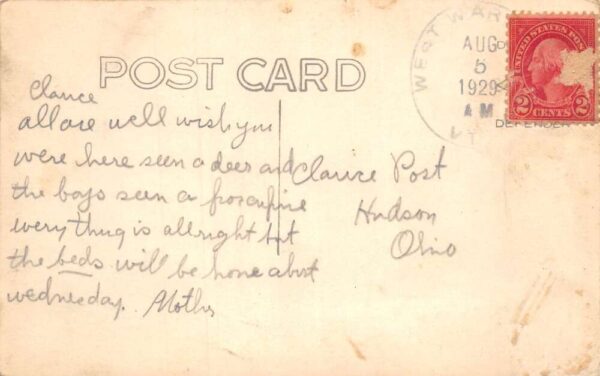 POST CARD
WEST WAR
AUG
5
1929
A M
VT
UNITED STATES POS
2 CENTS 2
DEFENDER
Clarice
all are well wish you
were here seen a deer and
the boys seen a porcupine
every thing is allright but
the beds will be home about
wednesday. Mother
Clarice Post
Hudson
Ohio